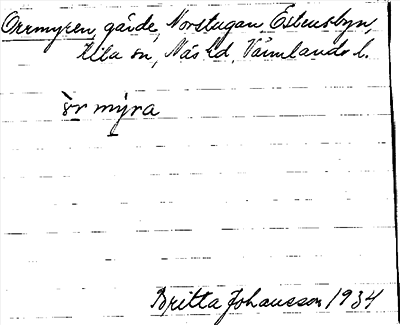 Orrmyren, gärde, Norstugan Esbensbyn,
Kila sn, Näs hd, Värmlands l.
òr mỳra
Britta Johansson 1934